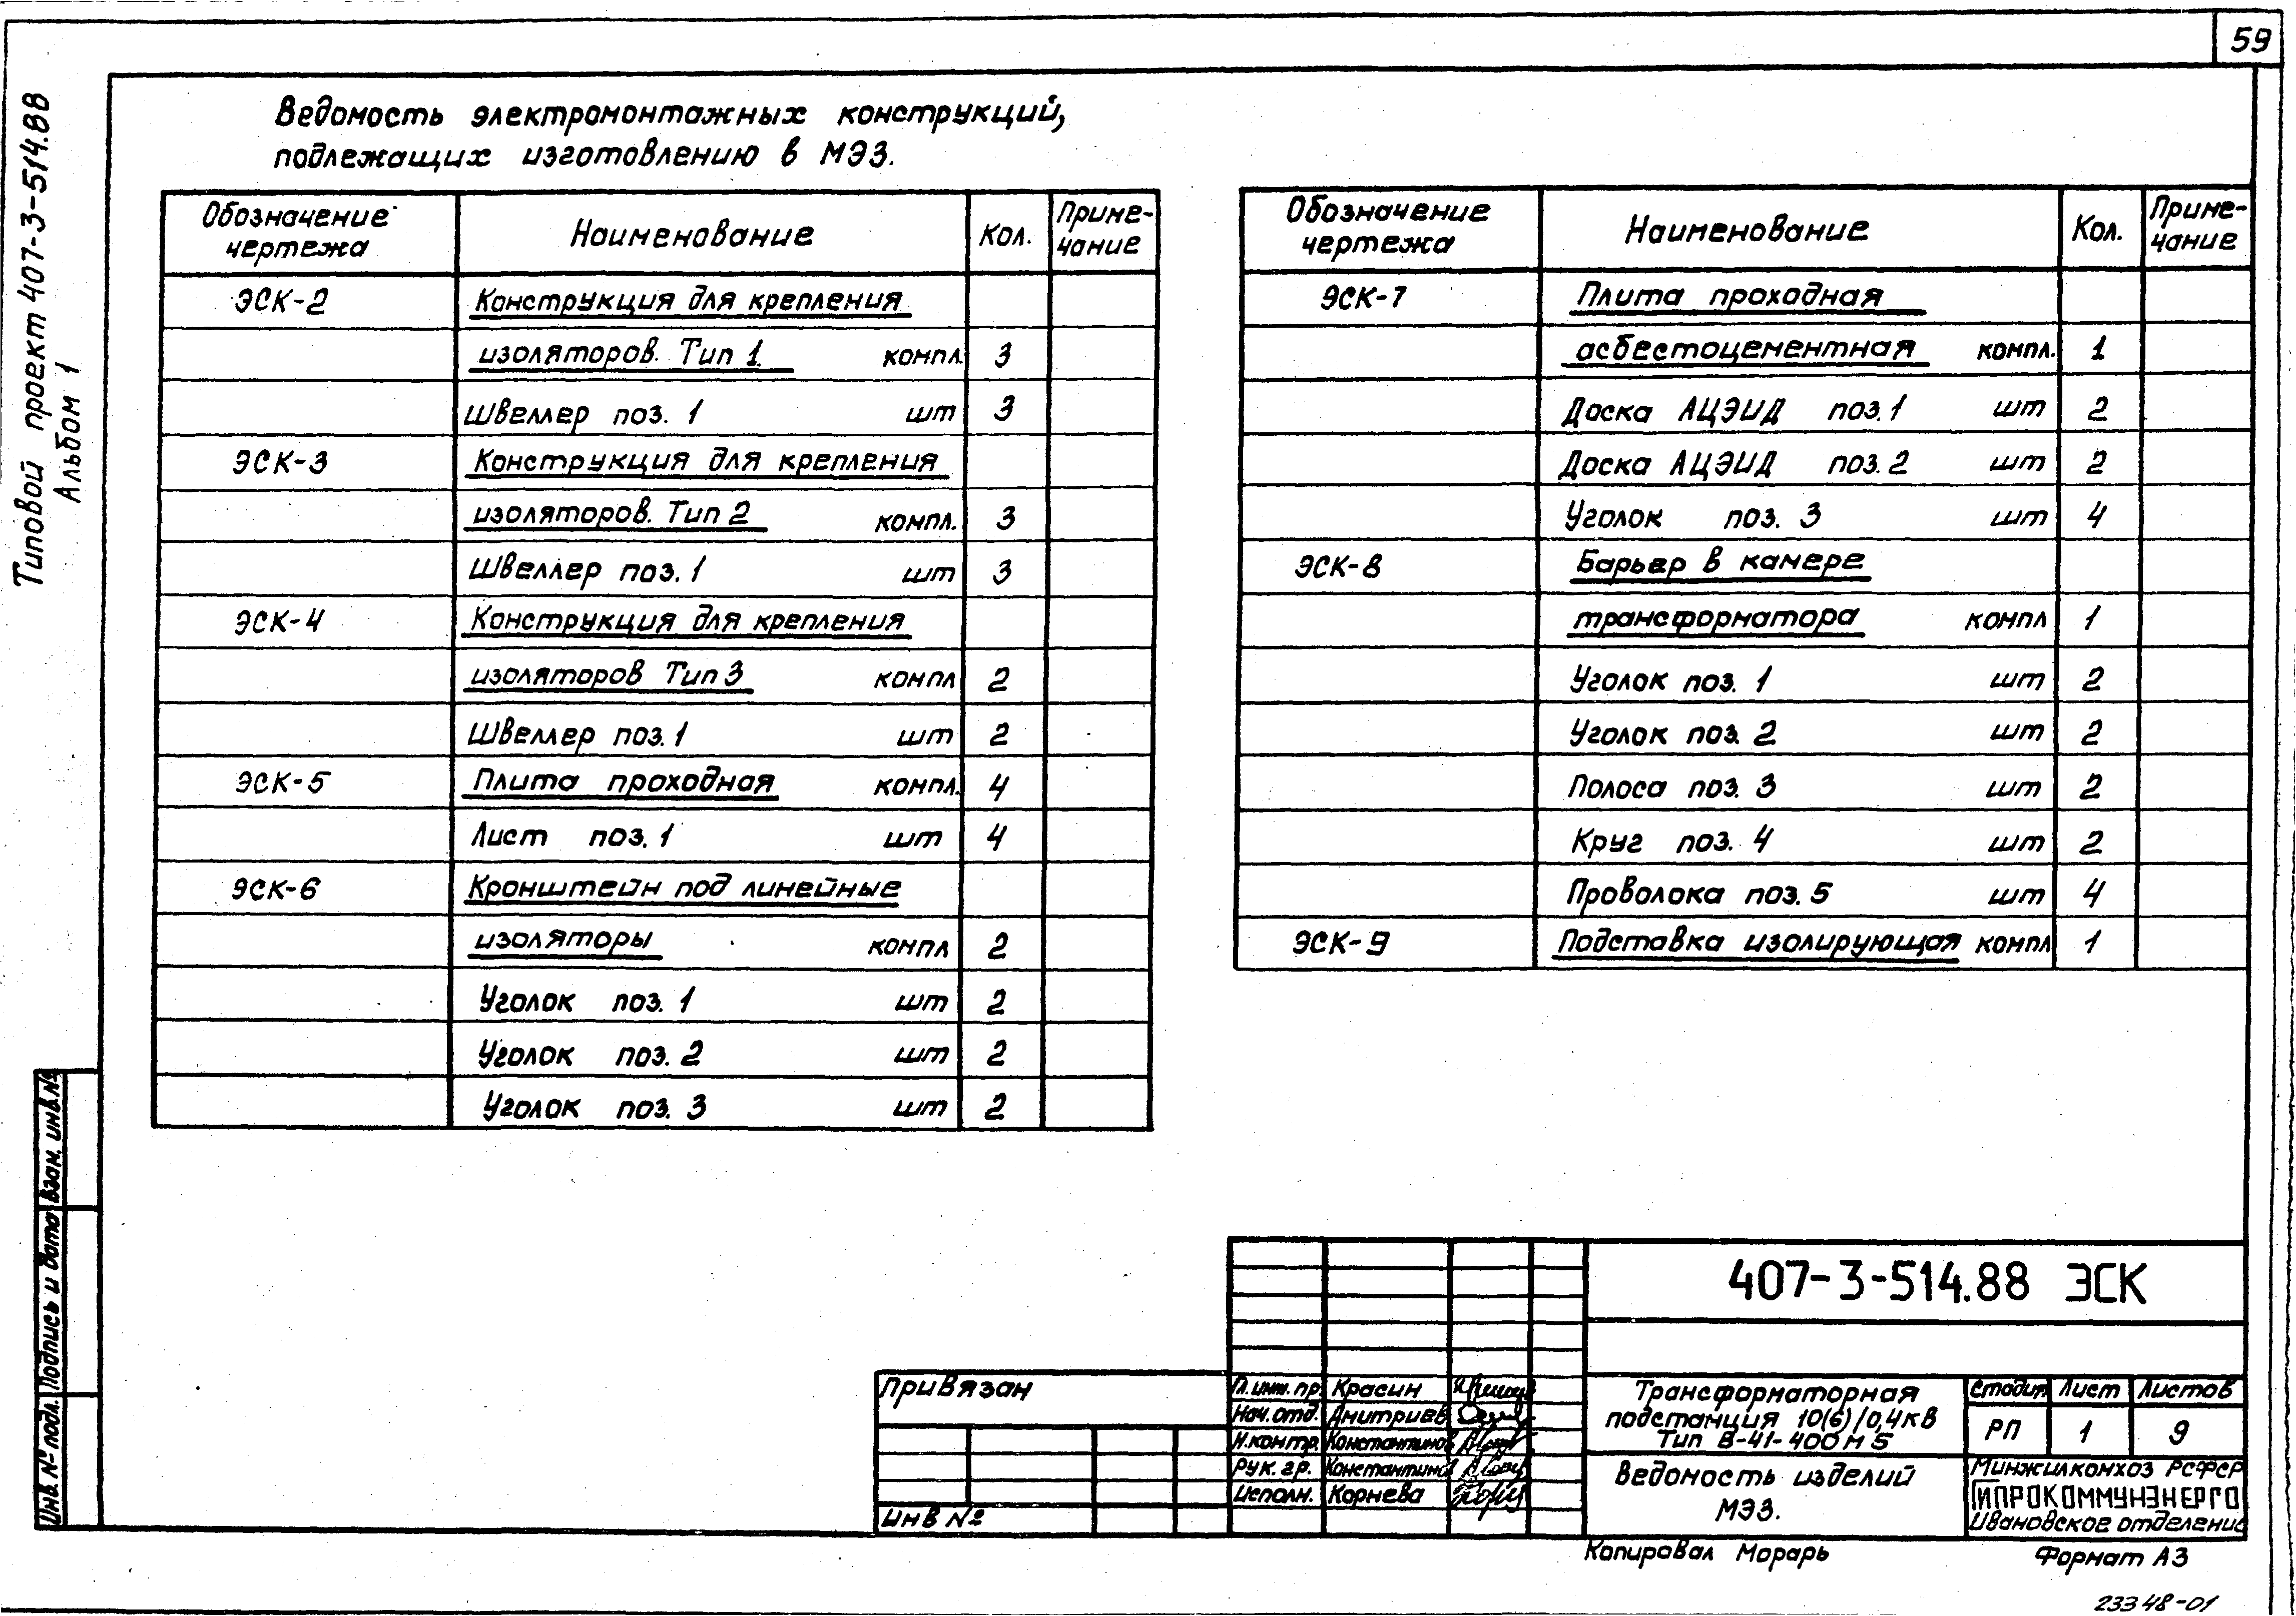 59
Типовой проект 407-3-514.88
Альбом 1
Ведомость электромонтажных конструкций,
подлежащих изготовлению в МЭЗ.
Обозначение чертежа Наименование Кол. Приме-чание
ЭСК-2 Конструкция для крепления
изоляторов. Тип 1. компл. 3
Швеллер поз. 1 шт 3
ЭСК-3 Конструкция для крепления
изоляторов. Тип 2 компл. 3
Швеллер поз. 1 шт 3
ЭСК-4 Конструкция для крепления
изоляторов Тип 3 компл 2
Швеллер поз. 1 шт 2
ЭСК-5 Плита проходная компл. 4
Лист поз. 1 шт 4
ЭСК-6 Кронштейн под линейные
изоляторы компл 2
Уголок поз. 1 шт 2
Уголок поз. 2 шт 2
Уголок поз. 3 шт 2
Обозначение чертежа Наименование Кол. Приме-чание
ЭСК-7 Плита проходная
асбестоцементная компл. 1
Доска АЦЭИД поз. 1 шт 2
Доска АЦЭИД поз. 2 шт 2
Уголок поз. 3 шт 4
ЭСК-8 Барьер в камере
трансформатора компл 1
Уголок поз. 1 шт 2
Уголок поз. 2 шт 2
Полоса поз. 3 шт 2
Круг поз. 4 шт 2
Проволока поз. 5 шт 4
ЭСК-9 Подставка изолирующая компл 1
Инв. № подл. Подпись и дата Взам. инв. №
Привязан
Инв №
Гл. инж. пр. Красин
Нач. отд. Дмитриев
Н. контр. Константинов
Рук. гр. Константинов
Исполн. Корнева
407-3-514.88 ЭСК
Трансформаторная
подстанция 10(6)/0,4кВ
Тип В-41-400М5
Стадия Лист Листов
РП 1 9
Ведомость изделий
МЭЗ.
Минжилкомхоз РСФСР
ГИПРОКОММУНЭНЕРГО
Ивановское отделение
Копировал Морарь
Формат А3
23348-01